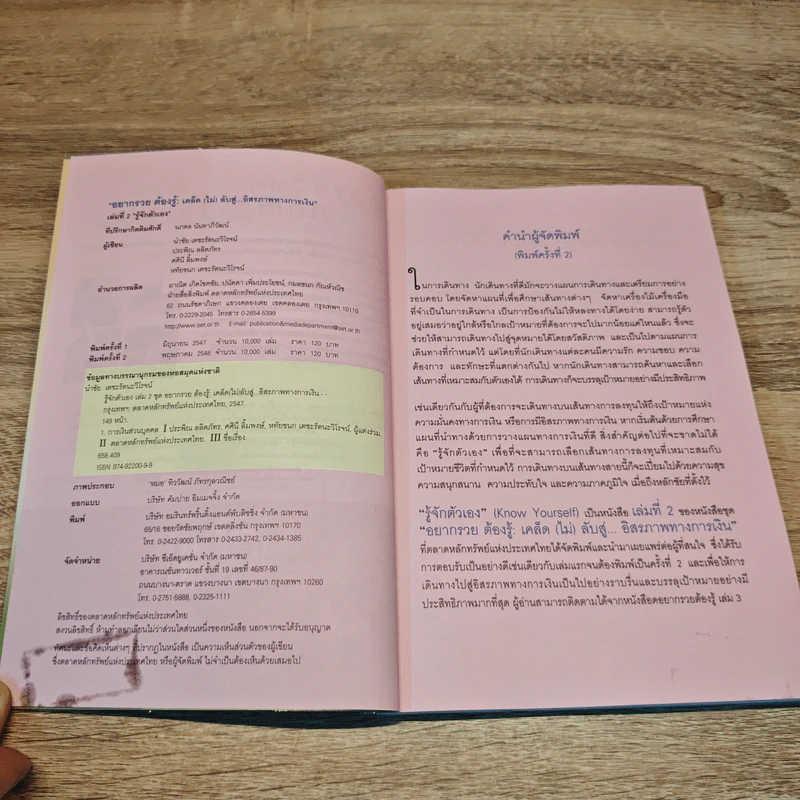 "อยากรวย ต้องรู้: เคล็ด (ไม่) ลับสู่...อิสรภาพทางการเงิน"
เล่มที่ 2 "รู้จักตัวเอง"
ที่ปรึกษากิตติมศักดิ์ นาดล นันทาภิวัฒน์
ผู้เขียน นำชัย เตชะรัตนะวิโรจน์
ประพิณ ลลิตภัทร
ศศินี ลิ้มพงษ์
หทัยชนก เตชะรัตนะวิโรจน์
อำนวยการผลิต มาณิต เกิดโชคชัย, ปนัดดา เพิ่มประโยชน์, กมลชนก กัณห์วณิช
ฝ่ายสื่อสิ่งพิมพ์ ตลาดหลักทรัพย์แห่งประเทศไทย
62 ถนนรัชดาภิเษก แขวงคลองเตย เขตคลองเตย กรุงเทพฯ 10110
โทร. 0-2229-2045 โทรสาร 0-2654-5399
http://www.set.or.th E-mail: publication&mediadepartment@set.or.th
พิมพ์ครั้งที่ 1 มิถุนายน 2547 จำนวน 10,000 เล่ม ราคา 120 บาท
พิมพ์ครั้งที่ 2 พฤษภาคม 2548 จำนวน 10,000 เล่ม ราคา 120 บาท
ข้อมูลทางบรรณานุกรมของหอสมุดแห่งชาติ
นำชัย เตชะรัตนะวิโรจน์
รู้จักตัวเอง เล่ม 2 ชุด อยากรวย ต้องรู้: เคล็ด(ไม่)ลับสู่...อิสรภาพทางการเงิน.--
กรุงเทพฯ: ตลาดหลักทรัพย์แห่งประเทศไทย, 2547.
149 หน้า.
1. การเงินส่วนบุคคล I ประพิณ ลลิตภัทร. ศศินี ลิ้มพงษ์, หทัยชนก เตชะรัตนะวิโรจน์, ผู้แต่งร่วม.
II ตลาดหลักทรัพย์แห่งประเทศไทย. III ชื่อเรื่อง.
658.409
ISBN 974-92200-9-9
ภาพประกอบ 'หมอ' ทิววัฒน์ ภัทรกุลวณิชย์
ออกแบบ บริษัท คัมปาย อิมเมจจิ้ง จำกัด
พิมพ์ บริษัท อมรินทร์พริ้นติ้งแอนด์พับลิชชิ่ง จำกัด (มหาชน)
65/16 ซอยวัดชัยพฤกษ์ เขตตลิ่งชัน กรุงเทพฯ 10170
โทร. 0-2422-9000 โทรสาร 0-2433-2742, 0-2434-1385
จัดจำหน่าย บริษัท ซีเอ็ดยูเคชั่น จำกัด (มหาชน)
อาคารเนชั่นทาวเวอร์ ชั้นที่ 19 เลขที่ 46/87-90
ถนนบางนา-ตราด แขวงบางนา เขตบางนา กรุงเทพฯ 10260
โทร. 0-2751-5888, 0-2325-1111
ลิขสิทธิ์ของตลาดหลักทรัพย์แห่งประเทศไทย
สงวนลิขสิทธิ์ ห้ามทำลอกเลียนไม่ว่าส่วนใดส่วนหนึ่งของหนังสือ นอกจากจะได้รับอนุญาต
ทัศนะและข้อคิดเห็นต่างๆ ที่ปรากฏในหนังสือ เป็นความเห็นส่วนตัวของผู้เขียน
ซึ่งตลาดหลักทรัพย์แห่งประเทศไทย หรือผู้จัดพิมพ์ ไม่จำเป็นต้องเห็นด้วยเสมอไป
คำนำผู้จัดพิมพ์
(พิมพ์ครั้งที่ 2)
ในการเดินทาง นักเดินทางที่ดีมักจะวางแผนการเดินทางและเตรียมการอย่าง
รอบคอบ โดยจัดหาแผนที่เพื่อศึกษาเส้นทางต่างๆ จัดหาเครื่องไม้เครื่องมือ
ที่จำเป็นในการเดินทาง เป็นการป้องกันไม่ให้หลงทางได้โดยง่าย สามารถรู้ตัว
อยู่เสมอว่าอยู่ใกล้หรือไกลเป้าหมายที่ต้องการจะไปมากน้อยแค่ไหนแล้ว ซึ่งจะ
ช่วยให้สามารถเดินทางไปสู่จุดหมายได้โดยสวัสดิภาพ และเป็นไปตามแผนการ
เดินทางที่กำหนดไว้ แต่โดยที่นักเดินทางแต่ละคนมีความรัก ความชอบ ความ
ต้องการ และทักษะที่แตกต่างกันไป หากนักเดินทางสามารถค้นหาและเลือก
เส้นทางที่เหมาะสมกับตัวเองได้ การเดินทางก็จะบรรลุเป้าหมายอย่างมีประสิทธิภาพ
เช่นเดียวกันกับผู้ที่ต้องการจะเดินทางบนเส้นทางการลงทุนให้ถึงเป้าหมายแห่ง
ความมั่นคงทางการเงิน หรือการมีอิสรภาพทางการเงิน หากเริ่มต้นด้วยการศึกษา
แผนที่นำทางด้วยการวางแผนทางการเงินที่ดี สิ่งสำคัญต่อไปที่จะขาดไม่ได้
คือ "รู้จักตัวเอง" เพื่อที่จะสามารถเลือกเส้นทางการลงทุนที่เหมาะสมกับ
เป้าหมายชีวิตที่กำหนดไว้ การเดินทางบนเส้นทางสายนี้ก็จะเปี่ยมไปด้วยความสุข
ความสนุกสนาน ความประทับใจ และความภาคภูมิใจ เมื่อถึงหลักชัยที่ตั้งไว้
"รู้จักตัวเอง" (Know Yourself) เป็นหนังสือ เล่มที่ 2 ของหนังสือชุด
"อยากรวย ต้องรู้: เคล็ด (ไม่) ลับสู่... อิสรภาพทางการเงิน"
ที่ตลาดหลักทรัพย์แห่งประเทศไทยได้จัดพิมพ์และนำมาเผยแพร่ต่อผู้ที่สนใจ ซึ่งได้รับ
การตอบรับเป็นอย่างดีเช่นเดียวกับเล่มแรกจนต้องพิมพ์เป็นครั้งที่ 2 และเพื่อให้การ
เดินทางไปสู่อิสรภาพทางการเงินเป็นไปอย่างราบรื่นและบรรลุเป้าหมายอย่างมี
ประสิทธิภาพมากที่สุด ผู้อ่านสามารถติดตามได้จากหนังสือดอยากรวยต้องรู้ เล่ม 3